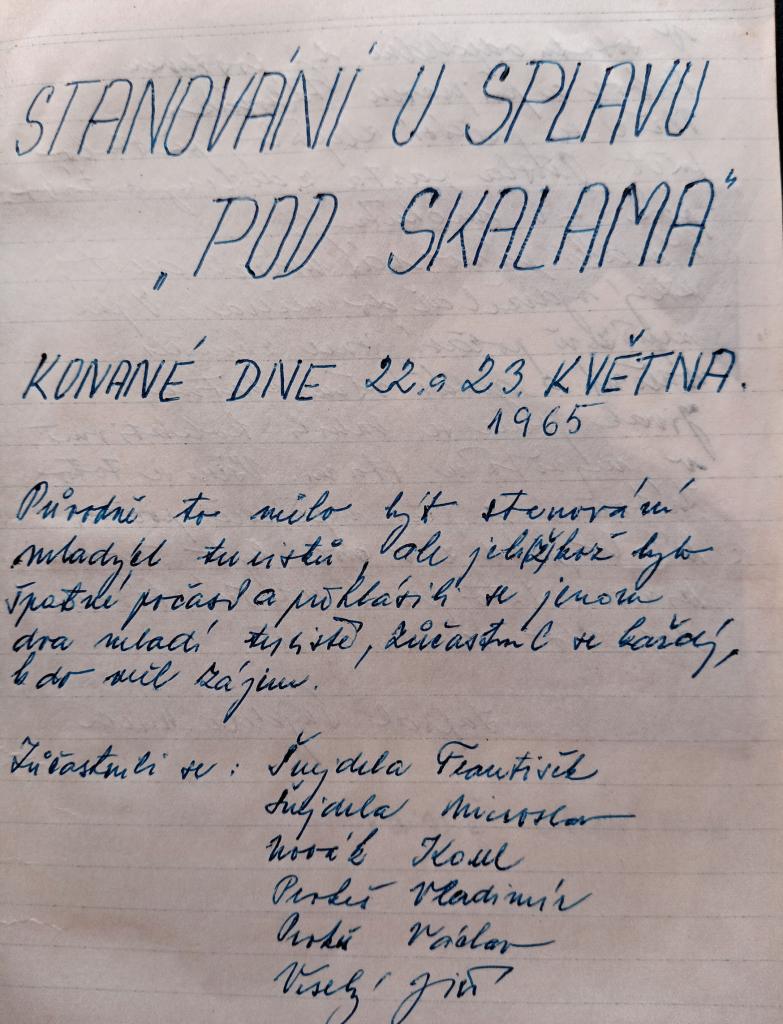 STANOVÁNÍ U SPLAVU
„POD SKALAMA“
KONANÉ DNE 22. a 23. KVĚTNA.
1965
Původně to mělo být stanování
mladých turistů, ale jelikož bylo
špatné počasí a přihlásili se jenom
dva mladí turisté, zůčastnil se každý,
kdo měl zájem.
Zůčastnili se: Šnejdela František
Šnejdela Miroslav
Novák Karel
Vladimír
Václav
Veselý Jiří